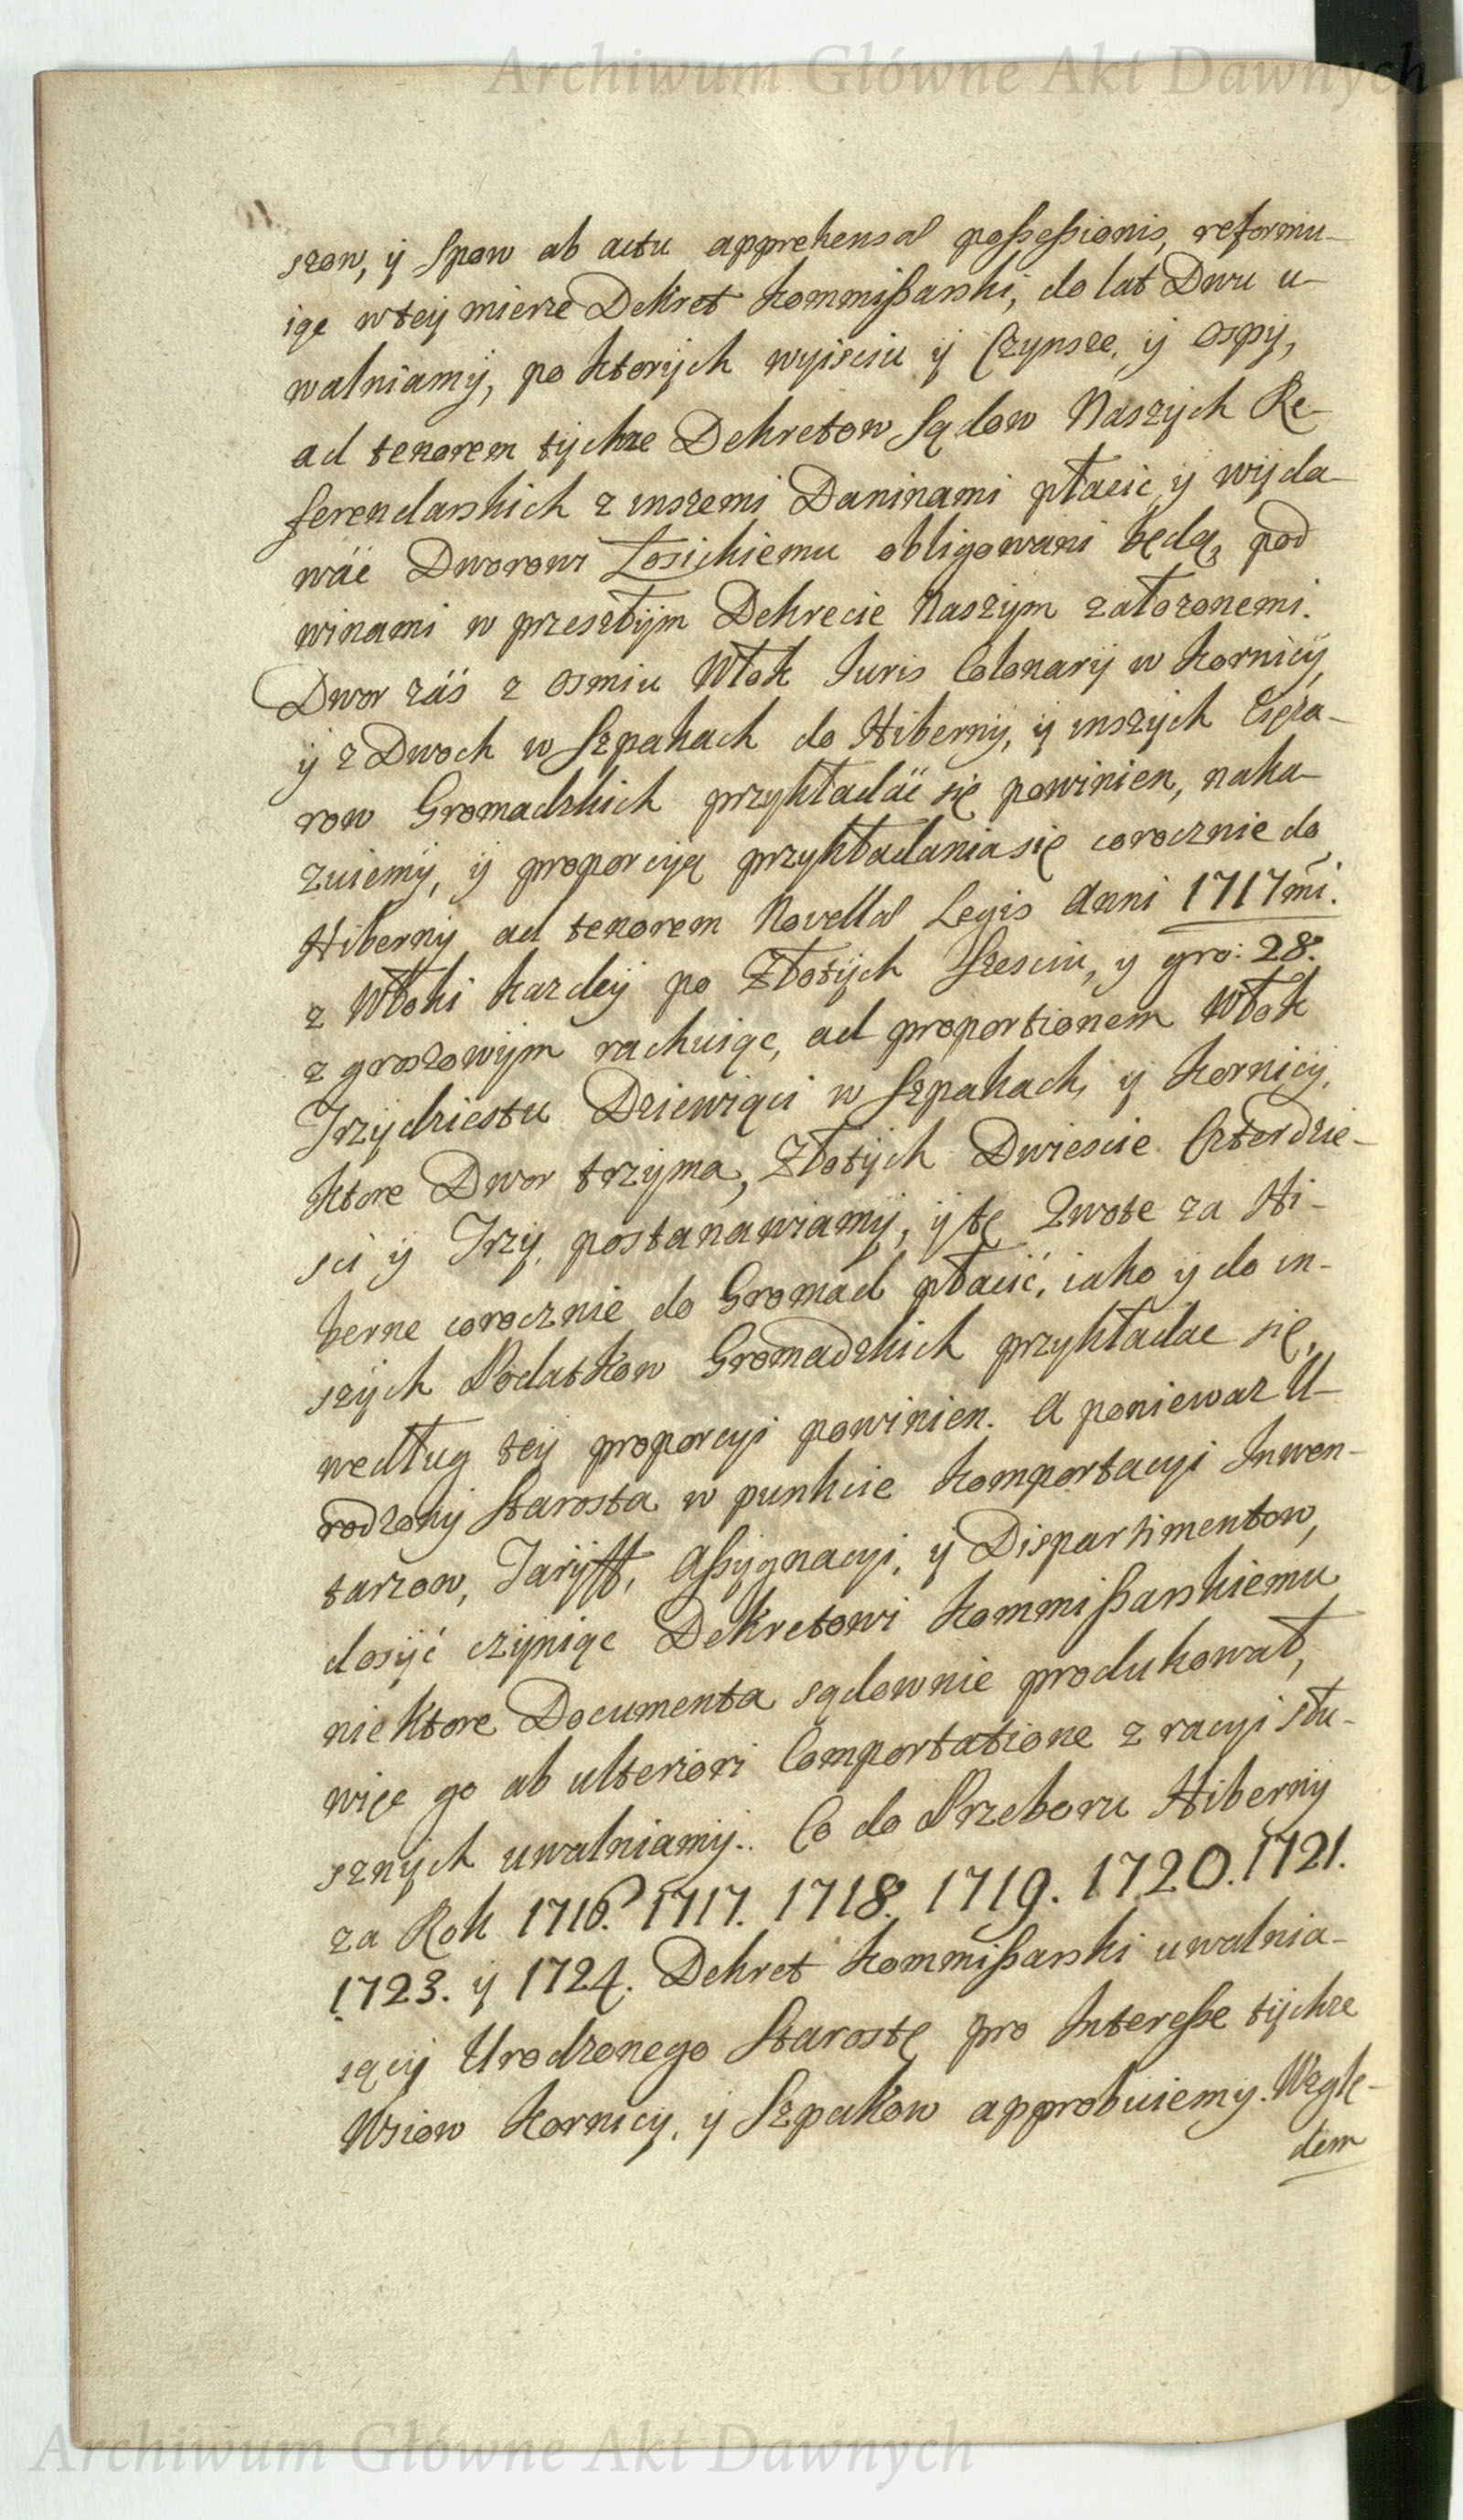 Archiwum Główne Akt Dawnych
szow, ÿ Spow ab actu apprehensæ possessionis, reformu-
iąc wteÿ mierze Dekret Kommissarski, do lat Dwu u-
walniamÿ, po ktorÿch wyisciu ÿ Czynsze, ÿ Ospÿ,
ad tenorem tÿchze Dekretow Sądow Naszÿch Re-
ferendarskich z inszemi Daninami płacić ÿ wÿda-
wáć Dworowi Łosickiemu obligowani będą, pod
winami w przeszłÿm Dekrecie Naszÿm założonemi.
Dwor záś z Osmiu Włok Iuris Colonarÿ w Kornicÿ,
ÿ z Dwoch w Szpakach do Hibernÿ, ÿ inszÿch Cięża-
row Gromadzkich przykładáć się powinien, naka-
zuiemÿ, ÿ proporcÿą przykładania się corocznie do
Hibernÿ ad tenorem Novellæ Legis Anni 1717mi.
z Włoki kazdeÿ po Złotÿch Szesciu, y gro: 28.
z groszowÿm rachuiąc, ad proportionem Włok
Trzÿdziestu Dziewiąci w Szpakach, ÿ Kornicÿ,
ktore Dwor trzÿma, Złotÿch Dwiescie Czterdzie-
sci ÿ Trzÿ, postanawiamÿ, ÿ tę Qwotę za Hi-
bernę corocznie do Gromad płacić, iako ÿ do in-
szÿch Podatkow Gromadzkich przykładac się,
według teÿ proporcyi powinien. A poniewaz U-
rodzonÿ Starosta w punkcie Komportacyi Inwen-
tarzow, Tarÿff, Assÿgnacyi, ÿ Dispartimentow,
dosÿć czÿniąc Dekretowi Kommissarskiemu
niektore Documenta sądownie produkował,
więc go ab ulteriori Comportatione z racyi słu-
sznÿch uwalniamÿ. Co do Przeboru Hibernÿ
za Rok 1716. 1717. 1718. 1719. 1720. 1721.
1723. ÿ 1724. Dekret Kommissarski uwalnia-
iącÿ Urodzonego Starostę pro Interesse tÿchze
Wsiow Kornicy, ÿ Szpakow approbuiemy. Wzglę-
dem
Archiwum Główne Akt Dawnych